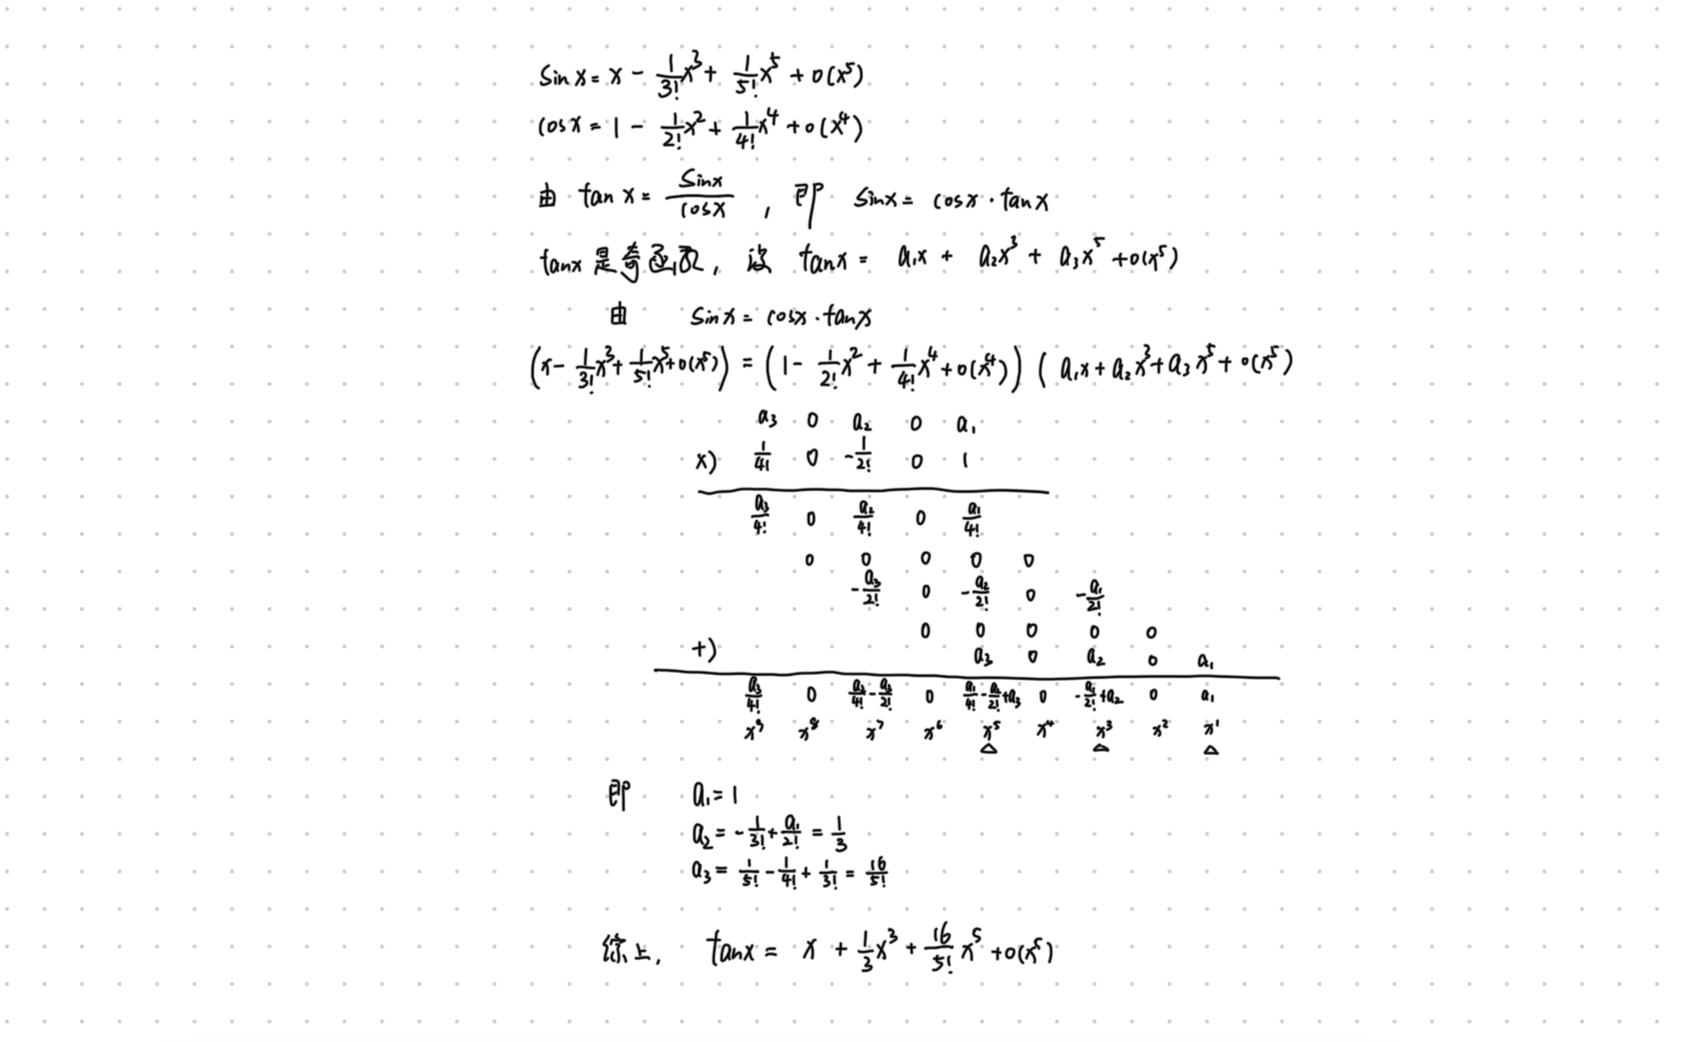 sin x = x - 1/3! x³ + 1/5! x⁵ + o(x⁵)
cos x = 1 - 1/2! x² + 1/4! x⁴ + o(x⁴)
由 tan x = sinx/cosx , 即 sinx = cosx · tanx
tanx 是奇函数, 设 tanx = a₁x + a₂x³ + a₃x⁵ + o(x⁵)
由 sinx = cosx · tanx
(x - 1/3! x³ + 1/5! x⁵ + o(x⁵)) = (1 - 1/2! x² + 1/4! x⁴ + o(x⁴)) ( a₁x + a₂x³ + a₃x⁵ + o(x⁵)
a₃ 0 a₂ 0 a₁
x) 1/4! 0 -1/2! 0 1
a₃/4! 0 a₂/4! 0 a₁/4!
0 0 0 0 0
-a₃/2! 0 -a₂/2! 0 -a₁/2!
0 0 0 0 0
+) a₃ 0 a₂ 0 a₁
a₃/4! 0 a₂/4! - a₃/2! 0 a₁/4! - a₂/2! + a₃ 0 -a₁/2! + a₂ 0 a₁
x⁹ x⁸ x⁷ x⁶ x⁵ x⁴ x³ x² x¹
△ △ △
即 a₁ = 1
a₂ = -1/3! + a₁/2! = 1/3
a₃ = 1/5! - 1/4! + 1/3! = 16/5!
综上, tanx = x + 1/3 x³ + 16/5! x⁵ + o(x⁵)